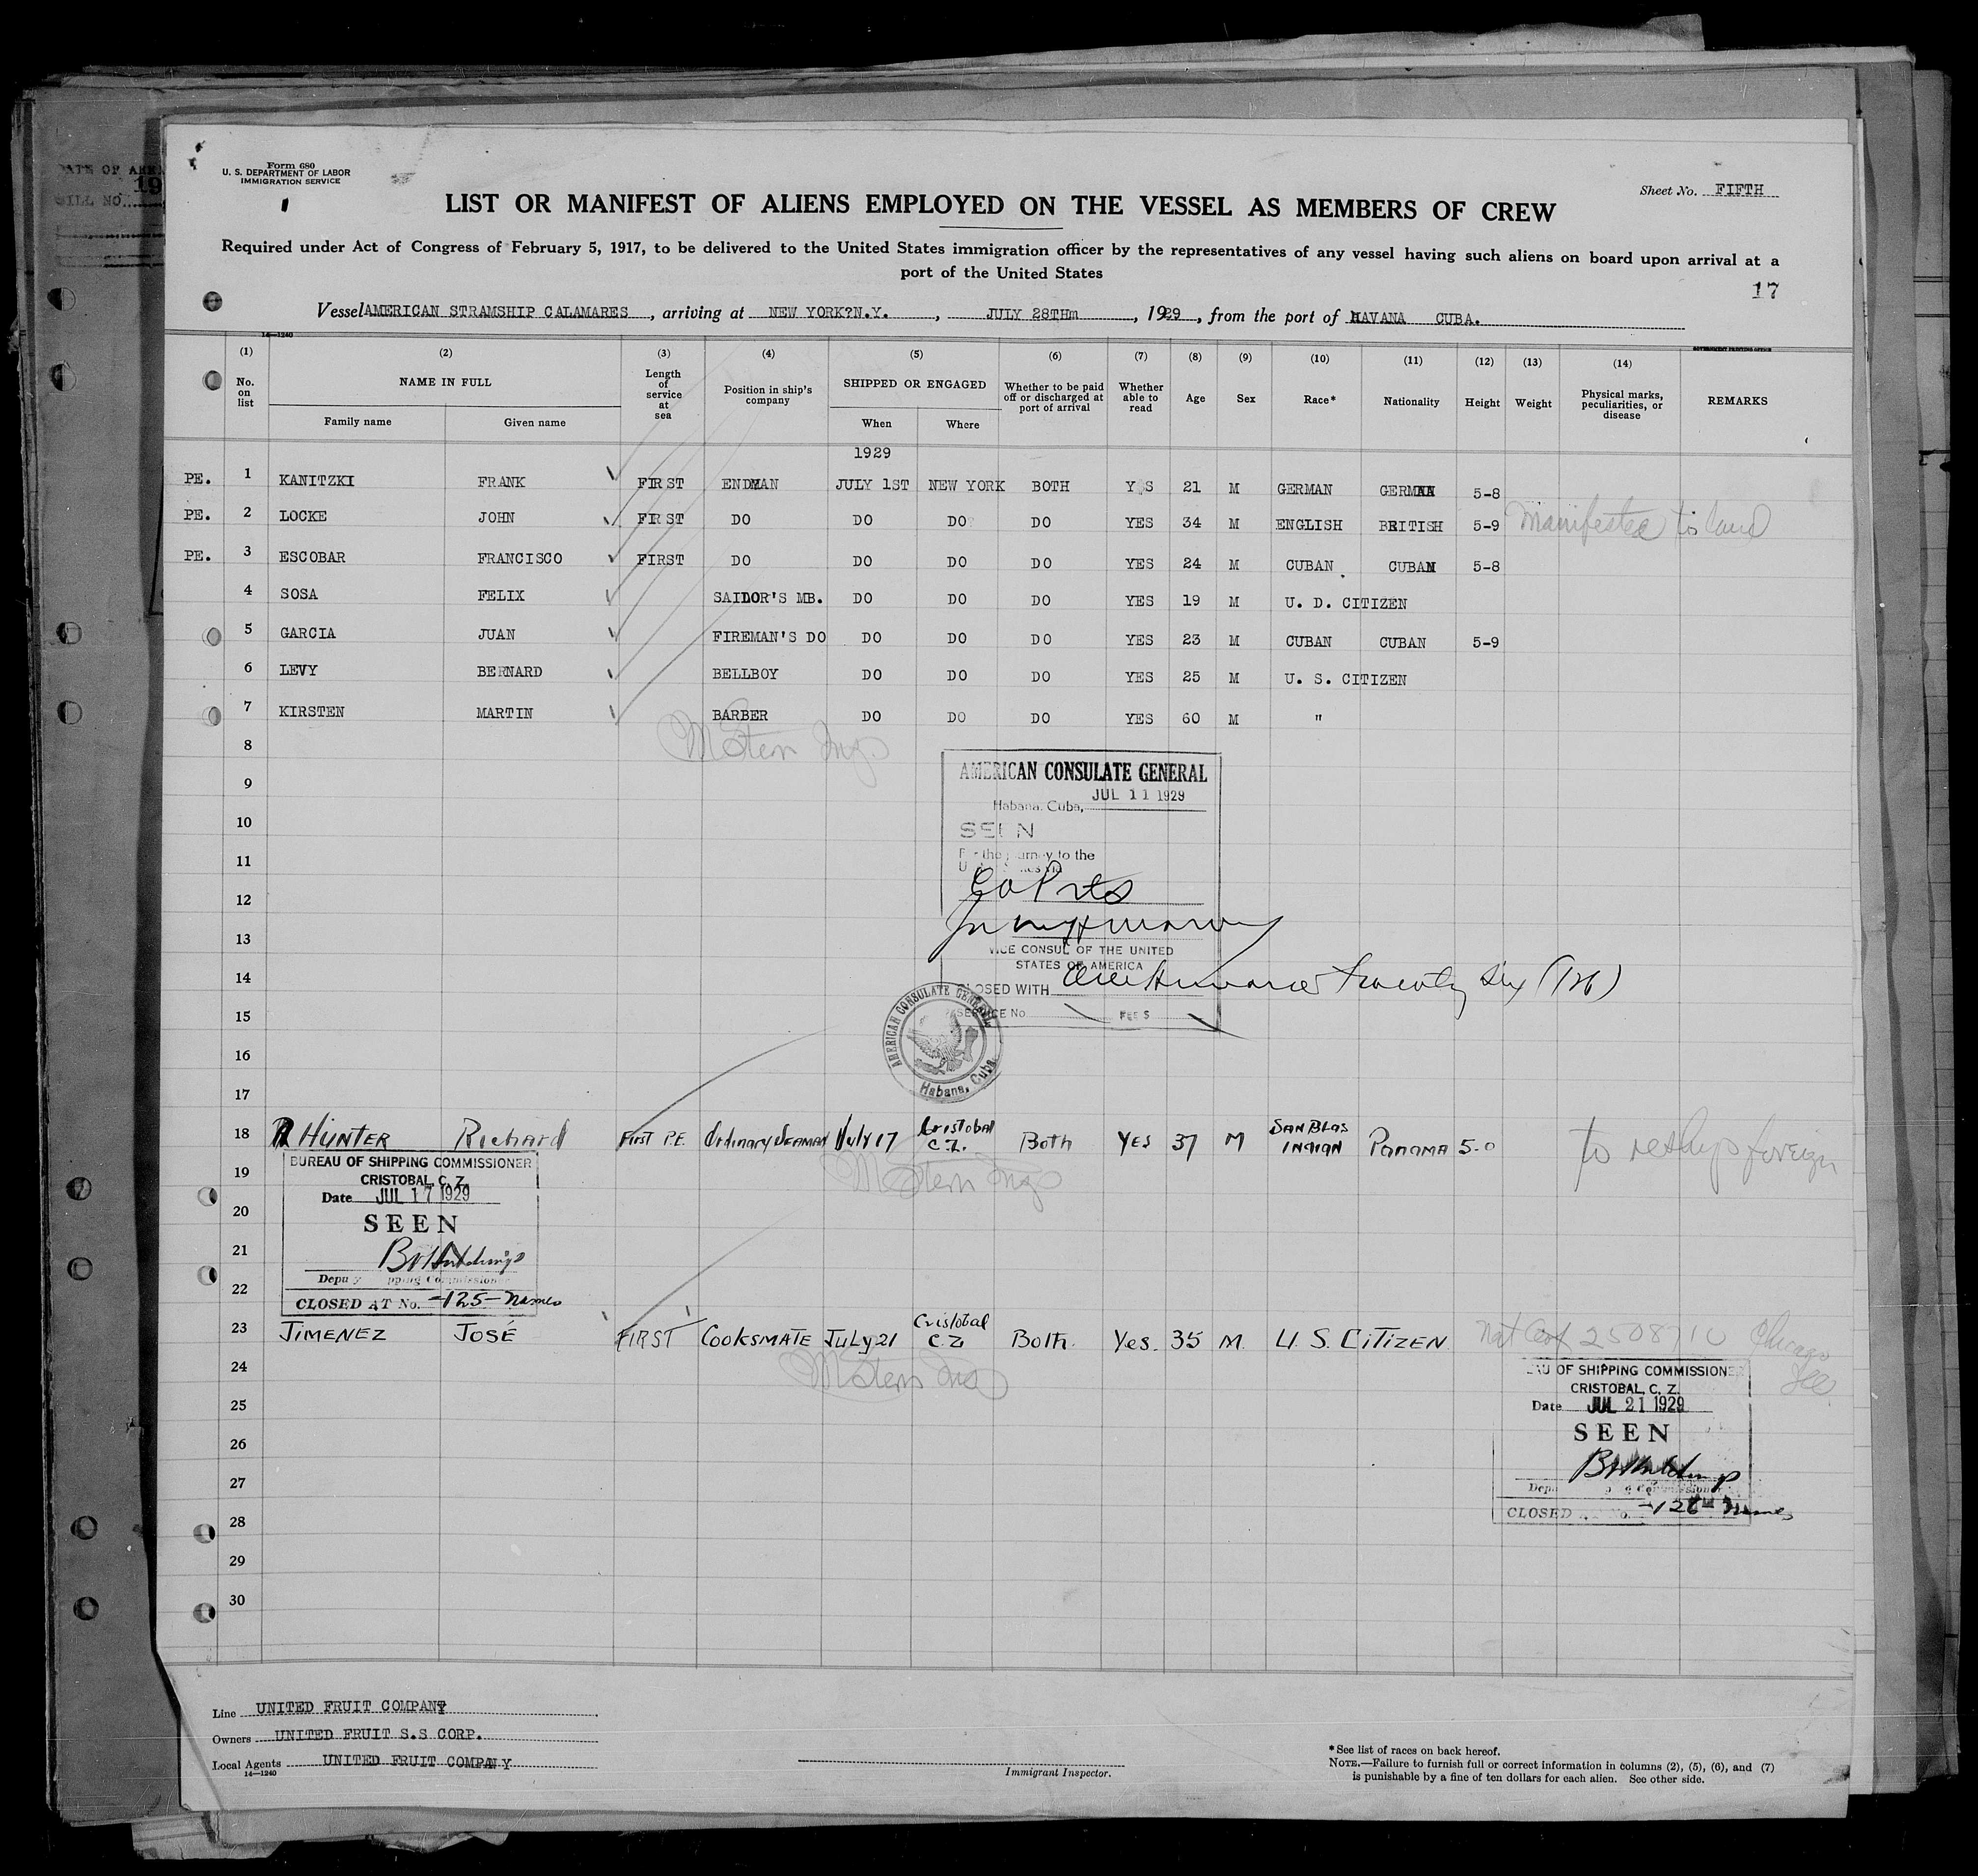 ATE OF ARR
19
BILL NO.
Form 680
U. S. DEPARTMENT OF LABOR
IMMIGRATION SERVICE
Sheet No. FIFTH
LIST OR MANIFEST OF ALIENS EMPLOYED ON THE VESSEL AS MEMBERS OF CREW
Required under Act of Congress of February 5, 1917, to be delivered to the United States immigration officer by the representatives of any vessel having such aliens on board upon arrival at a
port of the United States
17
Vessel AMERICAN STRAMSHIP CALAMARES, arriving at NEW YORK?N.Y., JULY 28THm, 1929, from the port of HAVANA CUBA.
14—1240
GOVERNMENT PRINTING OFFICE
(1) (2) (3) (4) (5) (6) (7) (8) (9) (10) (11) (12) (13) (14)
No. on list NAME IN FULL Family name Given name Length of service at sea Position in ship's company SHIPPED OR ENGAGED When Where Whether to be paid off or discharged at port of arrival Whether able to read Age Sex Race* Nationality Height Weight Physical marks, peculiarities, or disease REMARKS
1929
PE. 1 KANITZKI FRANK FIRST ENDMAN JULY 1ST NEW YORK BOTH Y S 21 M GERMAN GERMAN 5-8
PE. 2 LOCKE JOHN FIRST DO DO DO DO YES 34 M ENGLISH BRITISH 5-9 Manifested to land
PE. 3 ESCOBAR FRANCISCO FIRST DO DO DO DO YES 24 M CUBAN CUBAN 5-8
4 SOSA FELIX SAILOR'S MB. DO DO DO YES 19 M U. D. CITIZEN
5 GARCIA JUAN FIREMAN'S DO DO DO DO YES 23 M CUBAN CUBAN 5-9
6 LEVY BERNARD BELLBOY DO DO DO YES 25 M U. S. CITIZEN
7 KIRSTEN MARTIN BARBER DO DO DO YES 60 M "
8
9
10
11
12
13
14
15
16
17
AMERICAN CONSULATE GENERAL
Habana. Cuba, JUL 11 1929
SEEN
For the journey to the
VICE CONSUL OF THE UNITED
STATES OF AMERICA
CLOSED WITH One Hundred twenty six (126)
SERVICE No FEES
AMERICAN CONSULATE GENERAL
Habana, Cuba.
18 HUNTER Richard First P.E. Ordinary Seaman July 17 Cristobal C.Z. Both Yes 37 M San Blas Indian Panama 5-0 to reship foreign
19
20
21
22
BUREAU OF SHIPPING COMMISSIONER
CRISTOBAL, C. Z.
Date JUL 17 1929
SEEN
Deputy Shipping Commissioner
CLOSED AT No. -125- Names
23 JIMENEZ JOSÉ FIRST COOKSMATE July 21 Cristobal C.Z. Both. Yes. 35 M. U. S. CITIZEN Nat Cert 2508710 Chicago Ill
24
25
26
27
28
29
30
BUREAU OF SHIPPING COMMISSIONER
CRISTOBAL, C. Z.
Date JUL 21 1929
SEEN
CLOSED No. -126- Names
Line UNITED FRUIT COMPANY
Owners UNITED FRUIT S.S CORP.
Local Agents UNITED FRUIT COMPANY
14—1240
Immigrant Inspector.
*See list of races on back hereof.
NOTE.—Failure to furnish full or correct information in columns (2), (5), (6), and (7)
is punishable by a fine of ten dollars for each alien. See other side.